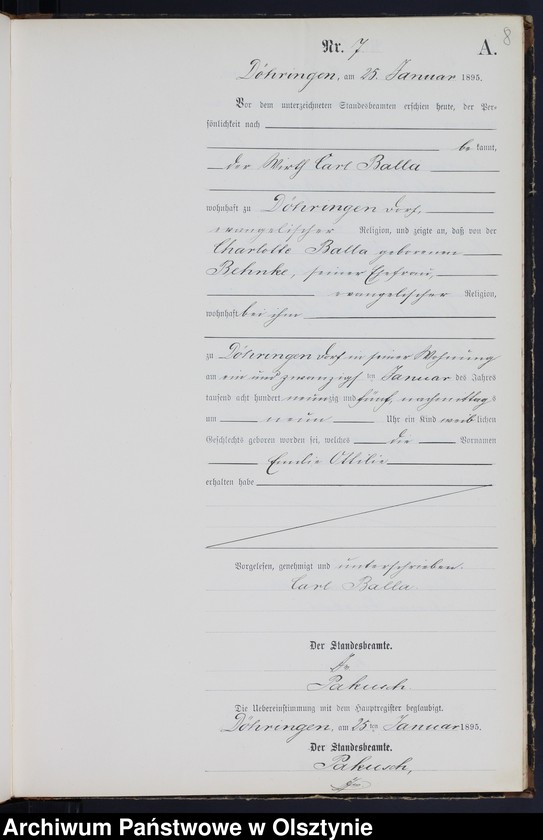 8
Nr. 7 A.
Döhringen, am 25. Januar 1895.
Vor dem unterzeichneten Standesbeamten erschien heute, der Per-
sönlichkeit nach
be kannt,
der Wirth Carl Balla
wohnhaft zu Döhringen Dorf,
evangelischer Religion, und zeigte an, daß von der
Charlotte Balla geborenen
Behnke, seiner Ehefrau,
evangelischer Religion,
wohnhaft bei ihm
zu Döhringen Dorf in seiner Wohnung
am ein und zwanzigsten Januar des Jahres
tausend acht hundert neunzig und fünf, nachmittags
um neun Uhr ein Kind weiblichen
Geschlechts geboren worden sei, welches die Vornamen
Emilie Ottilie
erhalten habe
Vorgelesen, genehmigt und unterschrieben.
Carl Balla
Der Standesbeamte.
Pakusch.
Die Uebereinstimmung mit dem Hauptregister beglaubigt.
Döhringen, am 25ten Januar 1895.
Der Standesbeamte.
Pakusch,
Archiwum Państwowe w Olsztynie